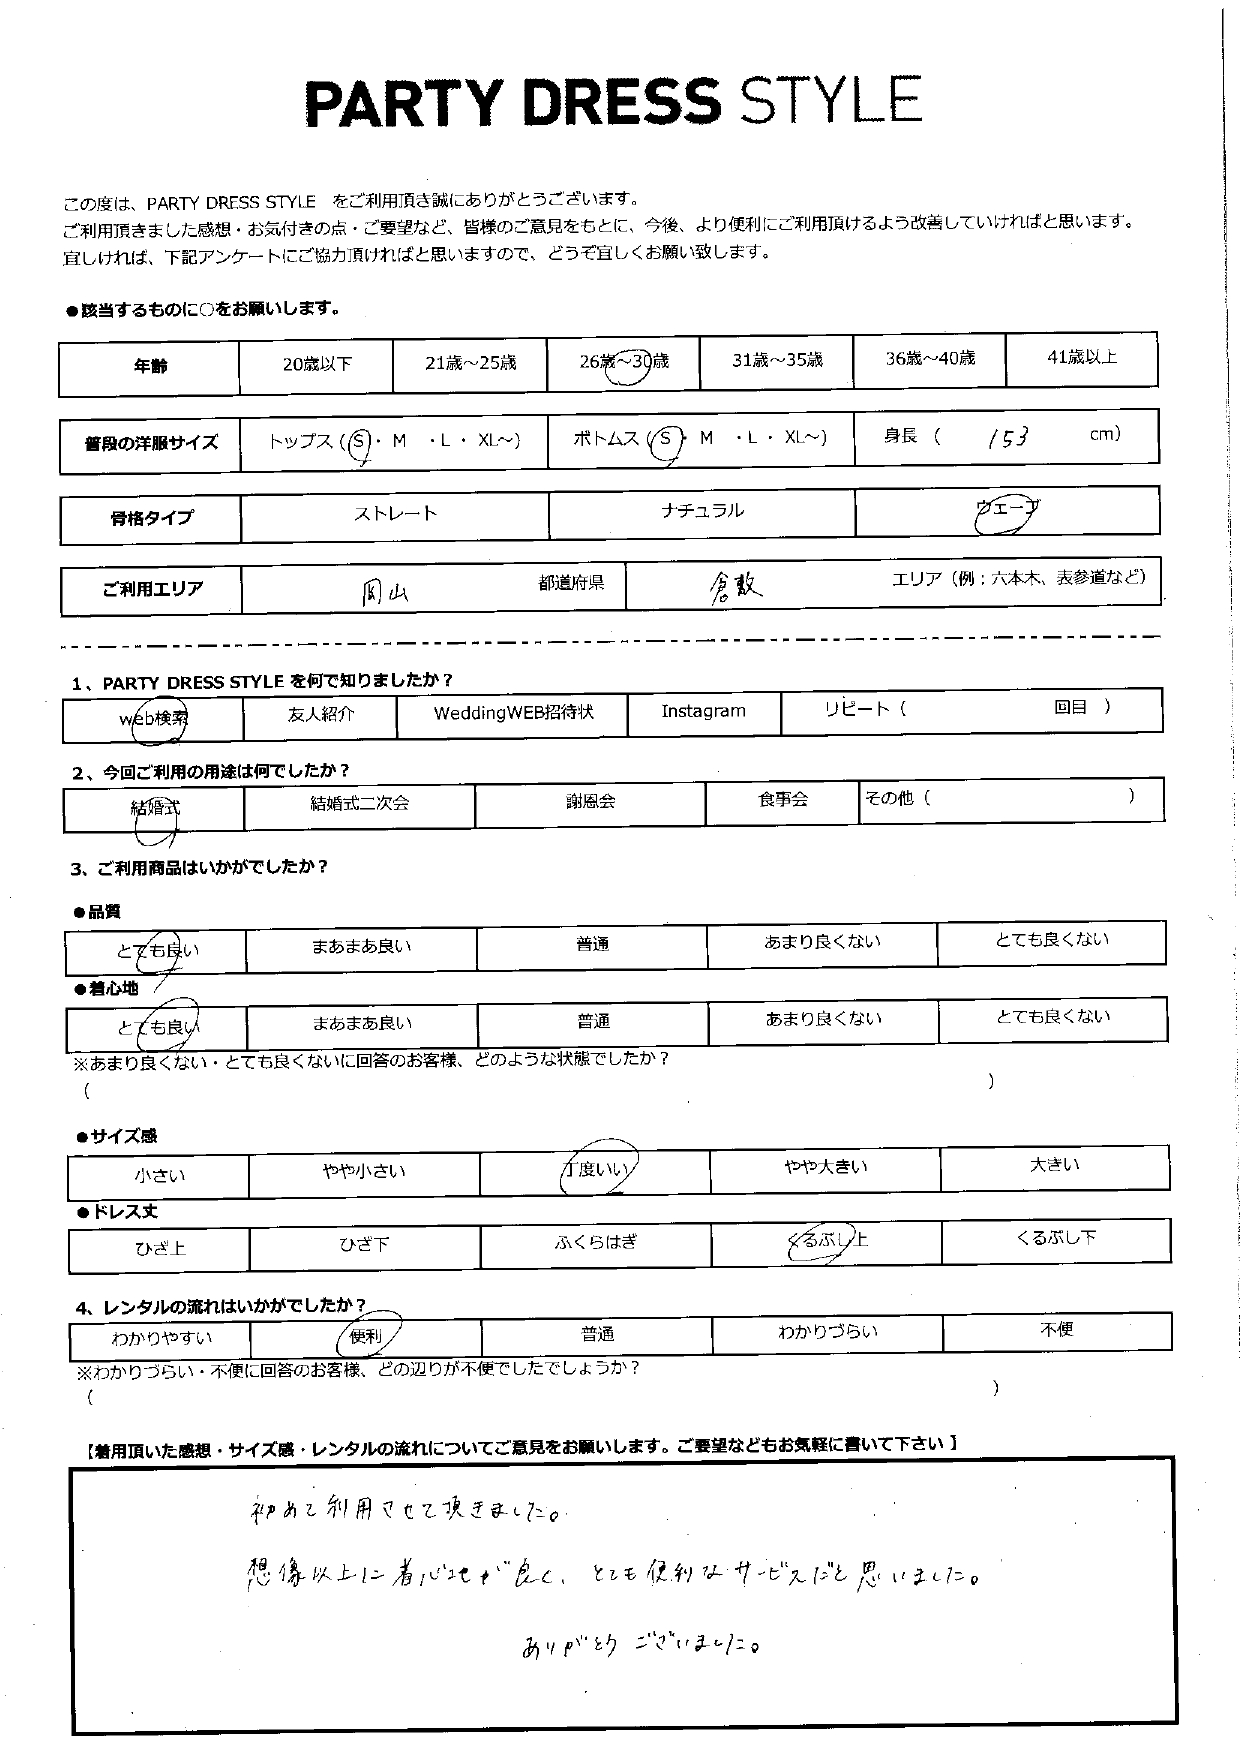 PARTY DRESS STYLE
この度は、PARTY DRESS STYLE をご利用頂き誠にありがとうございます。
ご利用頂きました感想・お気付きの点・ご要望など、皆様のご意見をもとに、今後、より便利にご利用頂けるよう改善していければと思います。
宜しければ、下記アンケートにご協力頂ければと思いますので、どうぞ宜しくお願い致します。
●該当するものに○をお願いします。
年齢 20歳以下 21歳～25歳 26歳～30歳 31歳～35歳 36歳～40歳 41歳以上
普段の洋服サイズ トップス（S・ M ・L・ XL～) ボトムス（S・ M ・L・ XL～) 身長（ 153 cm）
骨格タイプ ストレート ナチュラル ウェーブ
ご利用エリア 岡山 都道府県 倉敷 エリア（例：六本木、表参道など）
1、PARTY DRESS STYLE を何で知りましたか？
web検索 友人紹介 WeddingWEB招待状 Instagram リピート（ 回目 ）
2、今回ご利用の用途は何でしたか？
結婚式 結婚式二次会 謝恩会 食事会 その他（ ）
3、ご利用商品はいかがでしたか？
●品質
とても良い まあまあ良い 普通 あまり良くない とても良くない
●着心地
とても良い まあまあ良い 普通 あまり良くない とても良くない
※あまり良くない・とても良くないに回答のお客様、どのような状態でしたか？
（ ）
●サイズ感
小さい やや小さい 丁度いい やや大きい 大きい
●ドレス丈
ひざ上 ひざ下 ふくらはぎ くるぶし上 くるぶし下
4、レンタルの流れはいかがでしたか？
わかりやすい 便利 普通 わかりづらい 不便
※わかりづらい・不便に回答のお客様、どの辺りが不便でしたでしょうか？
（ ）
【着用頂いた感想・サイズ感・レンタルの流れについてご意見をお願いします。ご要望などもお気軽に書いて下さい 】
初めて利用させて頂きました。
想像以上に着心地が良く、とても便利なサービスだと思いました。
ありがとうございました。